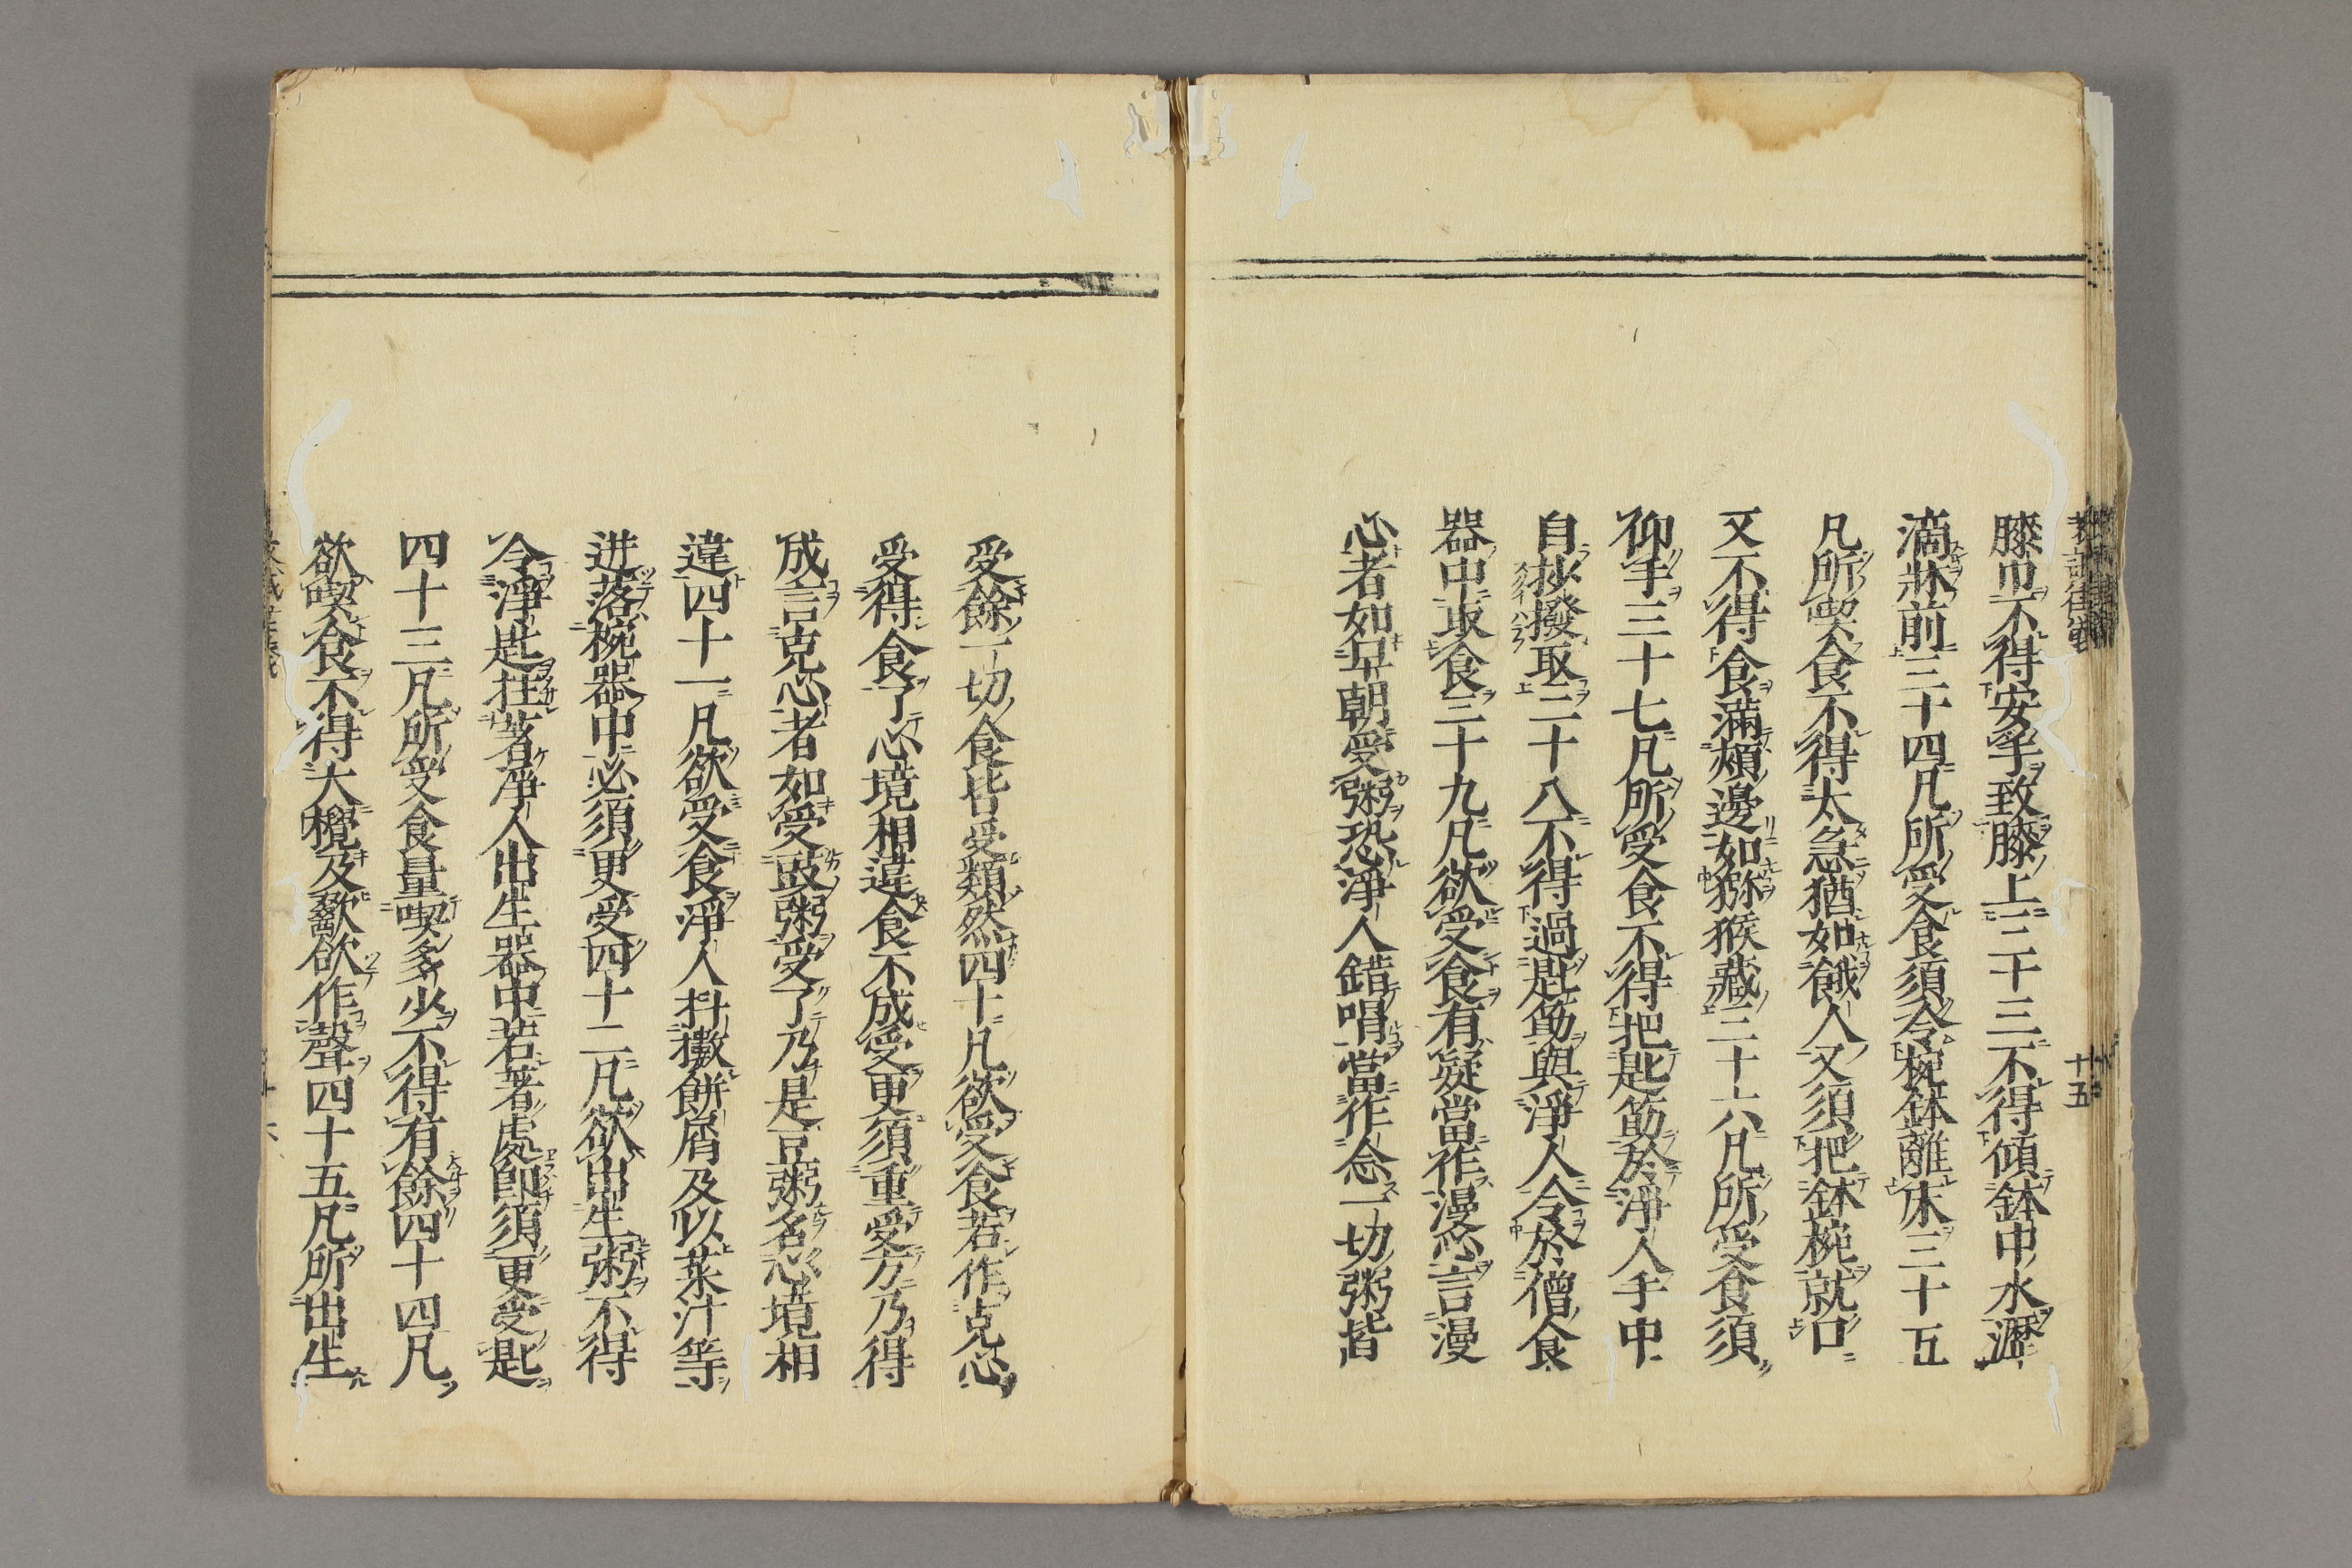 膝巾不得安手致膝上三十三不得傾鉢中水瀝
滴牀前三十四凡所受食須令椀鉢離床三十五
凡所喫食不得太急猶如餓人又須把鉢椀就口
又不得食滿頰邊如獼猴藏三十六凡所受食須
仰手三十七凡所受食不得把匙筯於淨人手中
自抄撥取三十八不得過匙筯與淨人令於僧食
器中取食三十九凡欲受食有疑當作漫心言漫
心者如早朝受粥恐淨人錯唱當作念一切粥皆
十五
受餘一切食皆受類然四十凡欲受食若作克心
受得食了心境相違食不成受更須重受方乃得
成言克心者如受豉粥受了乃是豆粥名心境相
違四十一凡欲受食淨人抖擻餅屑及以菜汁等
迸落椀器中必須更受四十二凡欲出生粥不得
令淨匙拄著淨人出生器中若著處即須更受匙
四十三凡所受食量喫多少不得有餘四十四凡
欲喫食不得大攪及歠飲作聲四十五凡所出生